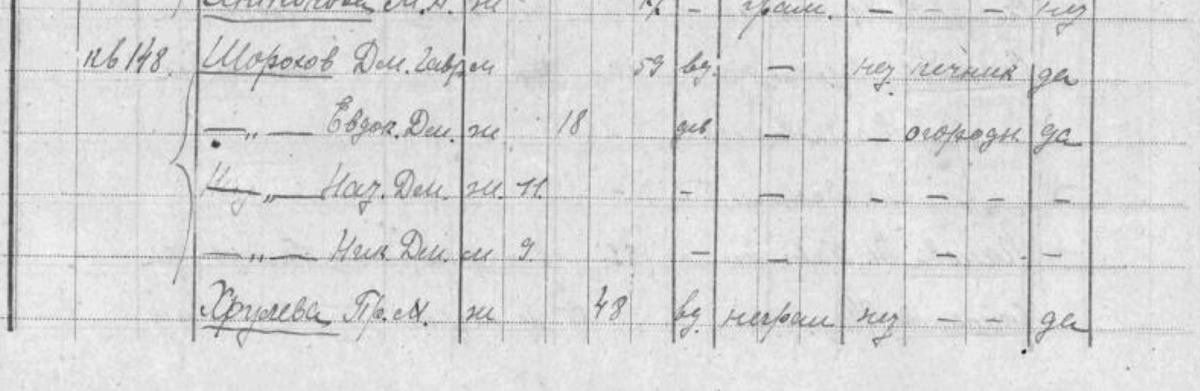 М.А. ж 17 – грам. – – – нез
кв 148. Шорохов Дм. Гавр м 59 вд. – нез печник да
—„— Евдок. Дм. ж 18 дев – – огороды. да
—„— Наз. Дм. ж. 11. – – – – – –
—„— Ник. Дм. м 9. – – – – –
Хрулева Пр. М. ж 48 вд неграм нез – – да